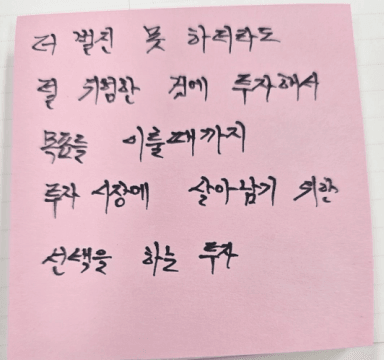 더 벌진 못 하더라도
덜 위험한 것에 투자해서
목표를 이룰때까지
투자 시장에 살아남기 위한
선택을 하는 투자